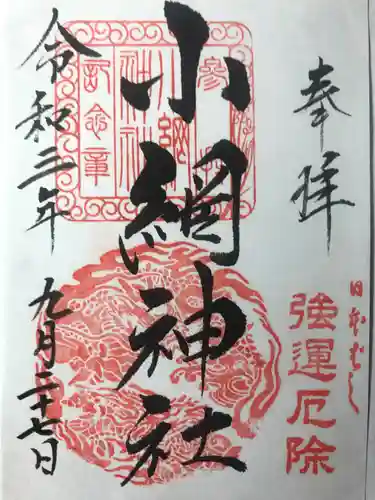 奉拝
日本ばし
強運厄除
小網神社
参拝
小網
神社
記念章
令和三年
九月二十七日